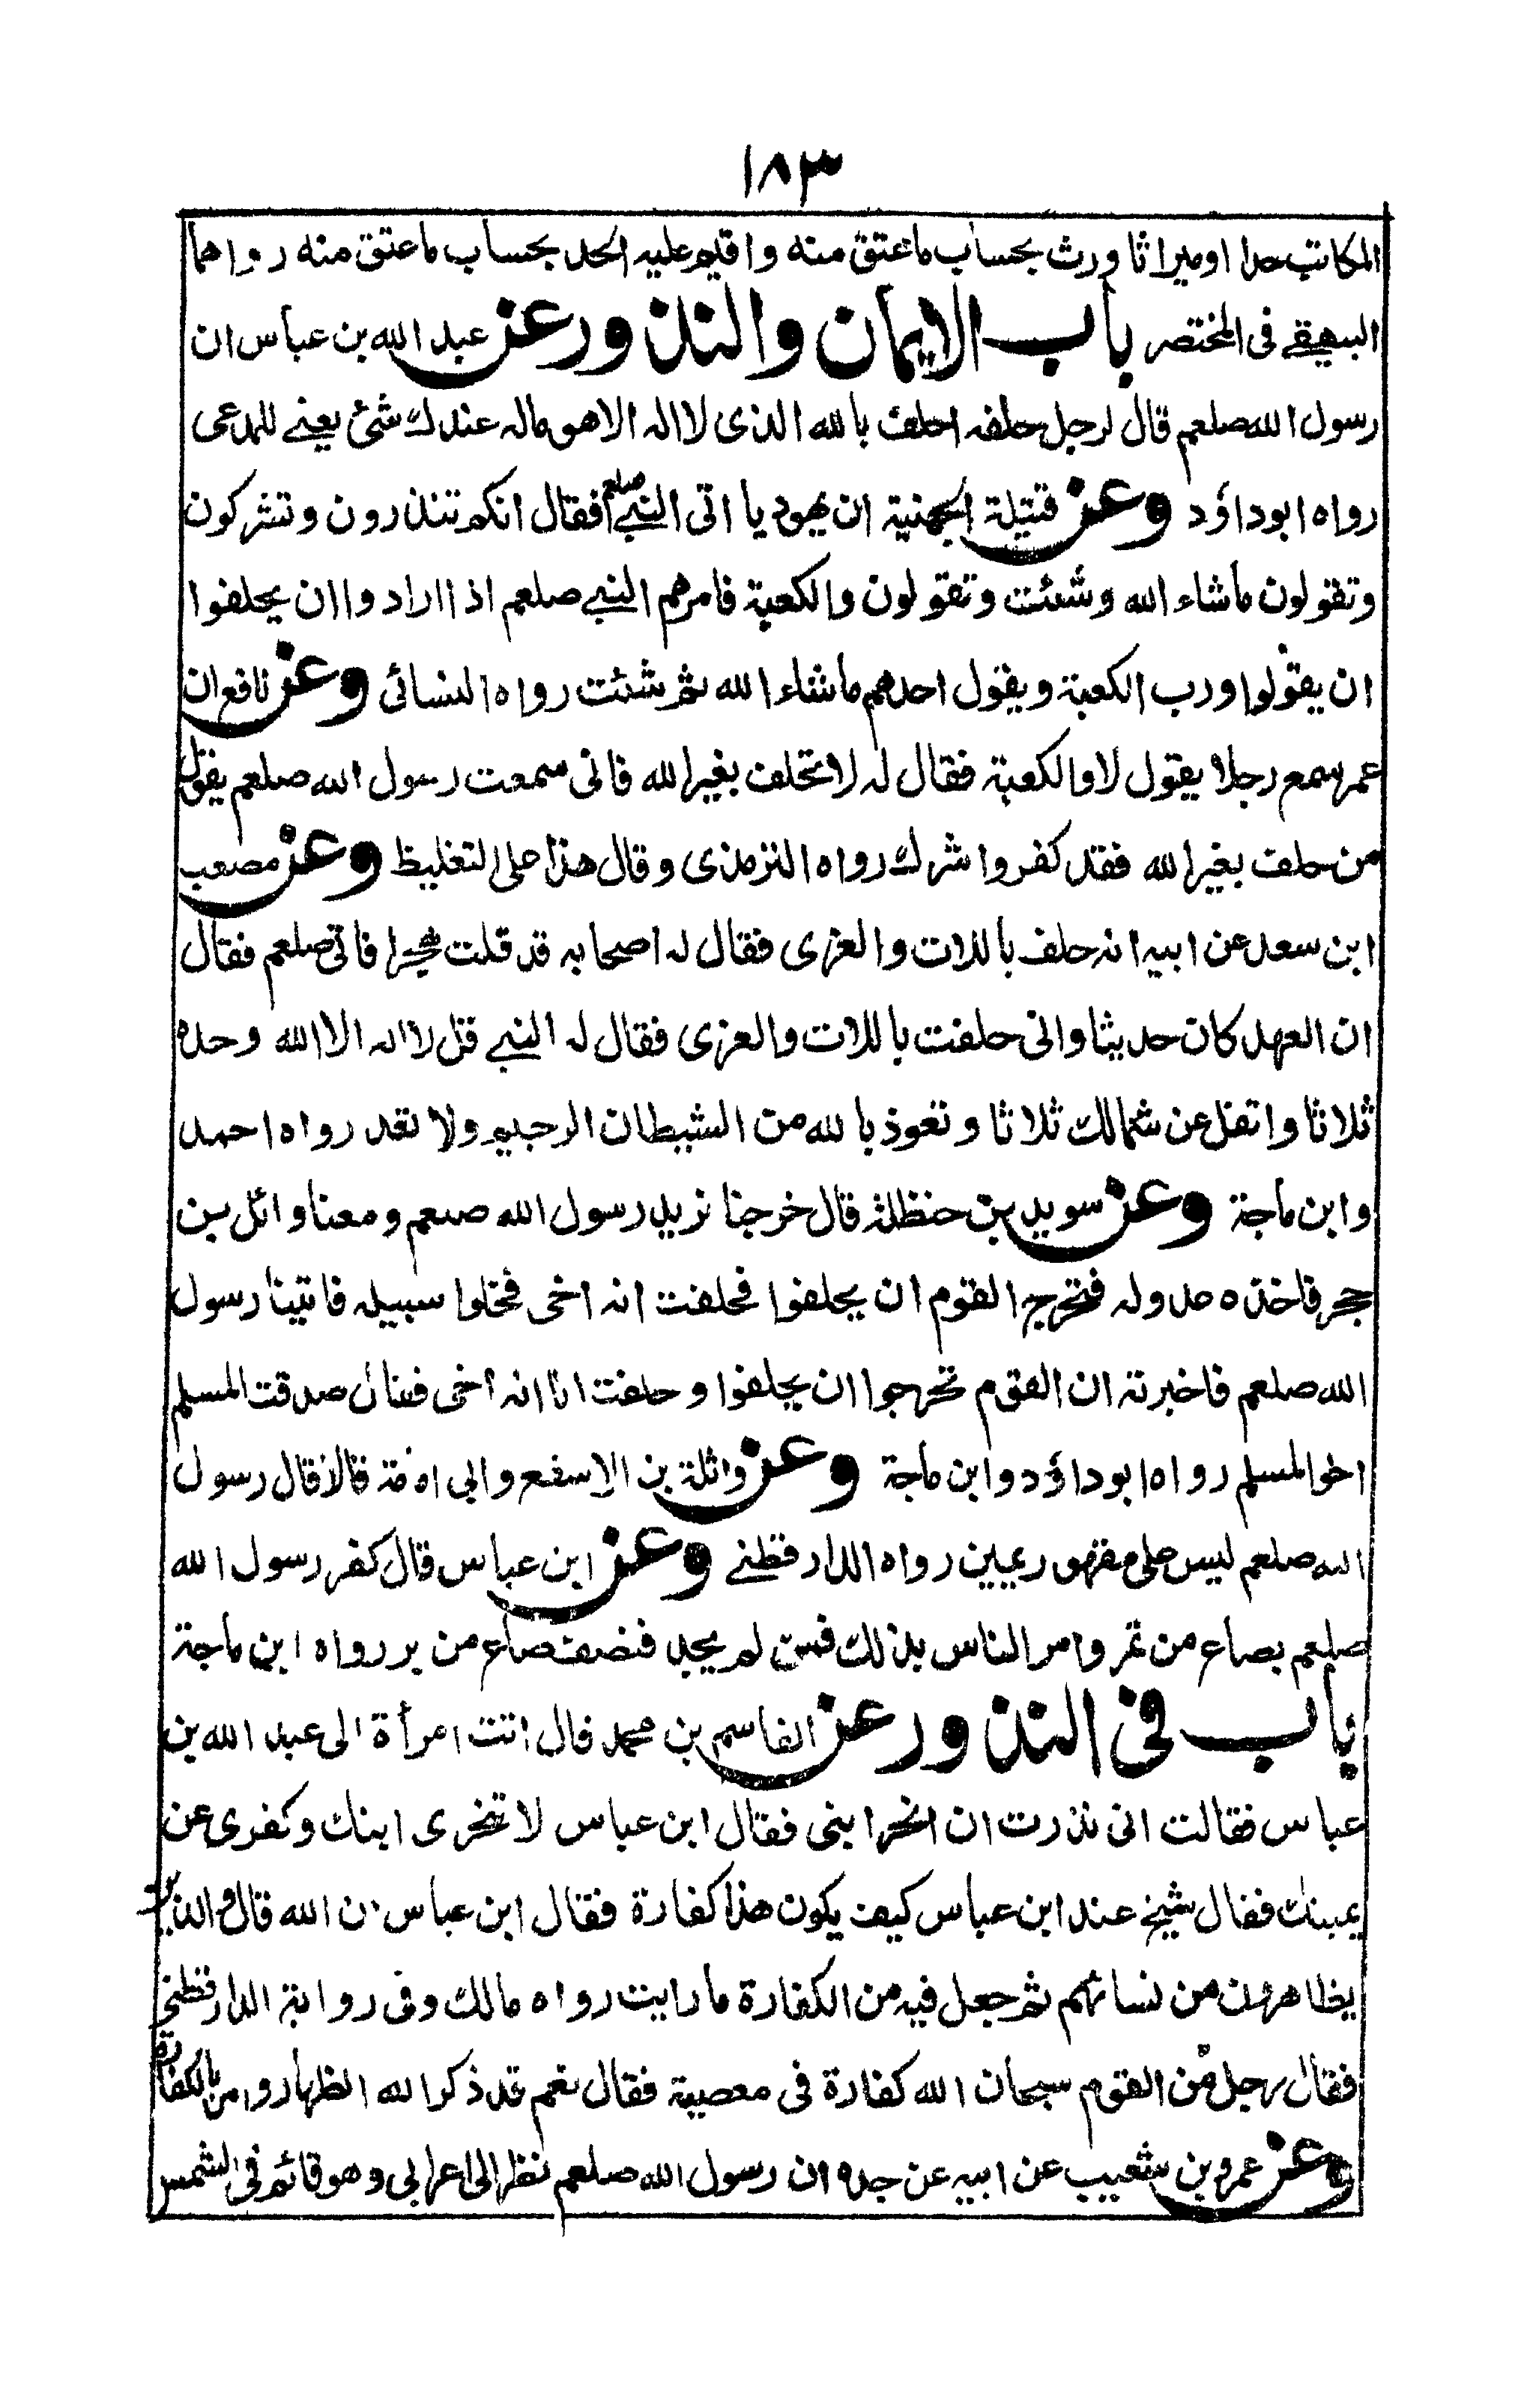 ١٨٣
المكاتب حدا او ميراثا ورث بحساب ما عتق منه واقيم عليه الحد بحساب ما عتق منه رواهما
البيهقے فی المختصر باب الايمان والنذور عن عبد الله بن عباس ان
رسول الله صلعم قال لرجل حلفه احلف بالله الذی لا اله الا هو ماله عندك شئ يعنے للمدعی
رواه ابوداؤد وعن قتيلة الجهنية ان يهوديا اتی النبے صلعم فقال انكم تنذرون وتشركون
وتقولون ماشاء الله وشئت وتقولون والكعبة فامرهم النبے صلعم اذا ارادوا ان يحلفوا
ان يقولوا ورب الكعبة ويقول احدهم ماشاء الله ثم شئت رواه النسائی وعن نافع ان
عمر سمع رجلا يقول لا والكعبة فقال له لا تحلف بغير الله فانی سمعت رسول الله صلعم يقول
من حلف بغير الله فقد كفر واشرك رواه الترمذی وقال هذا علی التغليظ وعن مصعب
ابن سعد عن ابيه انه حلف باللات والعزی فقال له اصحابه قد قلت هجرا فاتی صلعم فقال
ان العهد كان حديثا وانی حلفت باللات والعزی فقال له النبے قل لا اله الا الله وحده
ثلاثا واتفل عن شمالك ثلاثا وتعوذ بالله من الشيطان الرجيم ولا تعد رواه احمد
وابن ماجة وعن سويد بن حنظلة قال خرجنا نريد رسول الله صلعم ومعنا وائل بن
حجر فاخذه عدو له فتحرج القوم ان يحلفوا فحلفت انه اخی فخلوا سبيله فاتينا رسول
الله صلعم فاخبرته ان القوم تحرجوا ان يحلفوا وحلفت انا انه اخی فقال صدقت المسلم
اخو المسلم رواه ابوداؤد وابن ماجة وعن واثلة بن الاسفع وابی امامة قالا قال رسول
الله صلعم ليس علی مقهور يمين رواه الدارقطنے وعن ابن عباس قال كفر رسول الله
صلعم بصاع من تمر وامر الناس بذلك فمن لم يجد فنصف صاع من بر رواه ابن ماجة
باب فی النذور عن القاسم بن محمد قال اتت امرأة الی عبد الله بن
عباس فقالت انی نذرت ان انحر ابنی فقال ابن عباس لا تنحری ابنك وكفری عن
يمينك فقال شيخ عند ابن عباس كيف يكون هذا كفارة فقال ابن عباس ان الله قال والذين
يظاهرون من نسائهم ثم جعل فيه من الكفارة ما رايت رواه مالك وفی رواية الدارقطنی
فقال رجل من القوم سبحان الله كفارة فی معصية فقال نعم قد ذكر الله الظهار وامر بالكفارة
وعن عمرو بن شعيب عن ابيه عن جده ان رسول الله صلعم نظر الی اعرابی وهو قائم فی الشمس